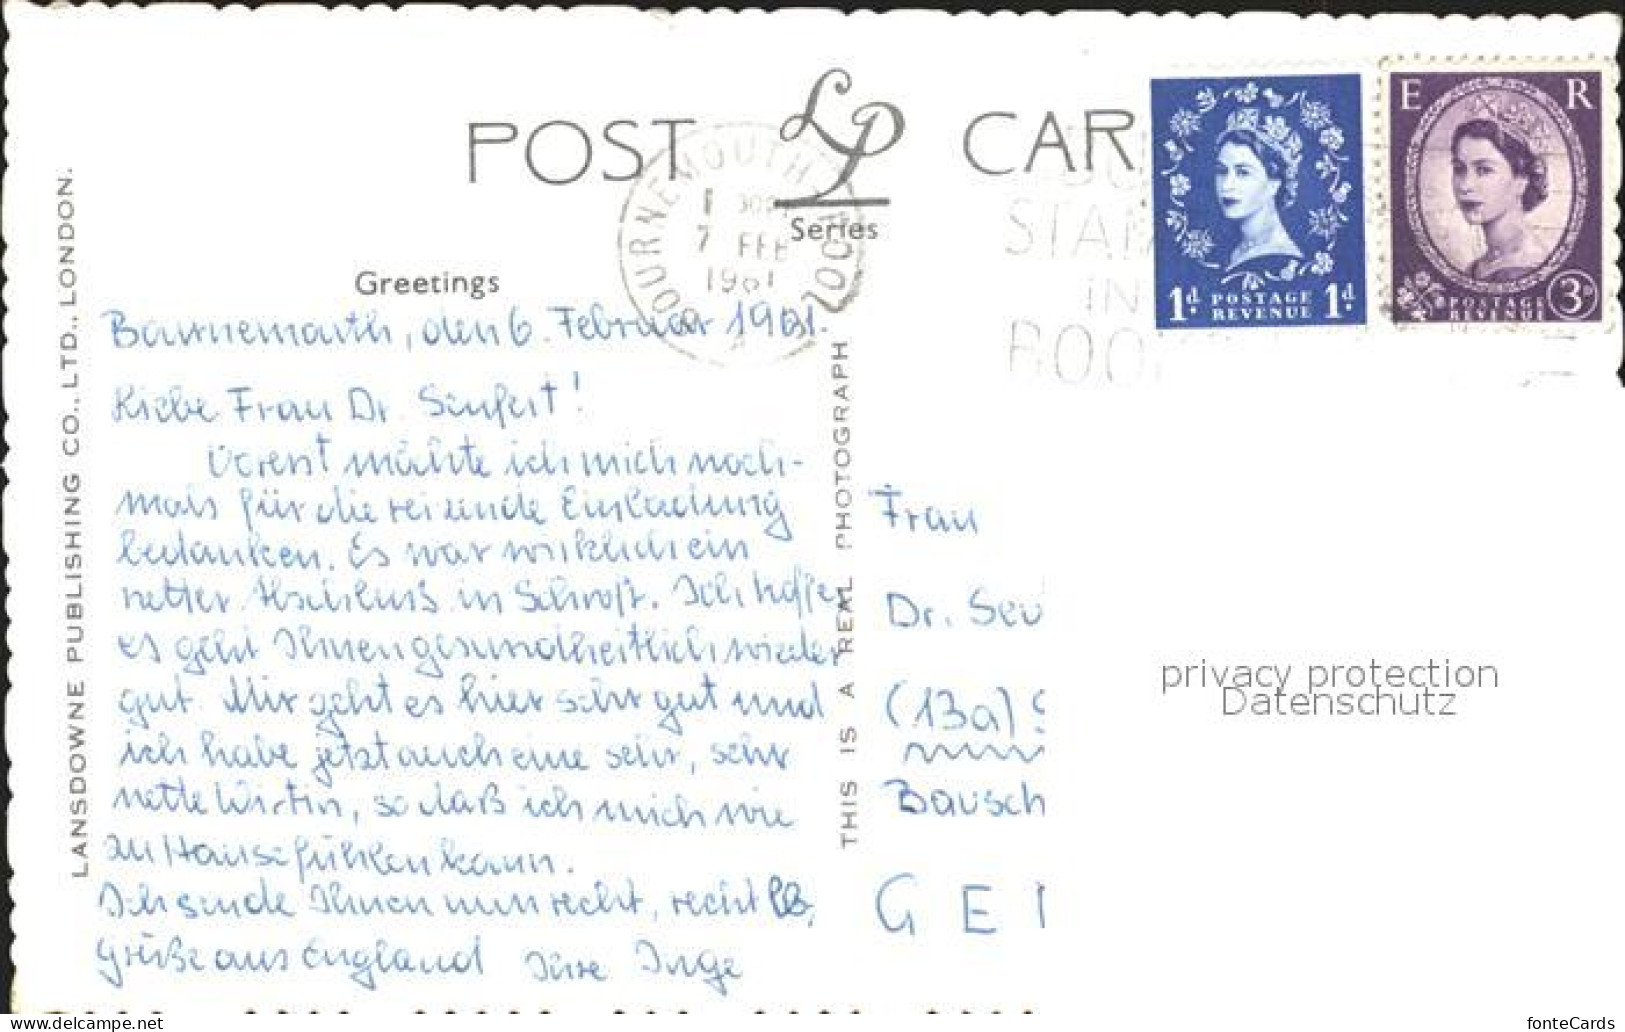 POST LP CARD
Series
Greetings
BOURNEMOUTH POOLE
7 FEB
1961
STAM
IN
BOO
1d POSTAGE 1d
REVENUE
E R
POSTAGE 3D
REVENUE
LANSDOWNE PUBLISHING CO., LTD., LONDON.
THIS IS A REAL PHOTOGRAPH
Bournemouth, den 6. Februar 1961.
Liebe Frau Dr. Seufert!
Vorerst möchte ich mich noch-
mals für die reizende Einladung
bedanken. Es war wirklich ein
netter Abschluß in Schroft. Ich hoffe,
es geht Ihnen gesundheitlich wieder
gut. Mir geht es hier sehr gut und
ich habe jetzt auch eine sehr, sehr
nette Wirtin, so daß ich mich wie
zu Hause fühlen kann.
Ich sende Ihnen nun recht, recht lb.
Grüße aus England Ihre Inge
Frau
Dr. Seu
(13a)
Bausch
G E
privacy protection
Datenschutz
delcampe.net
fonteCards